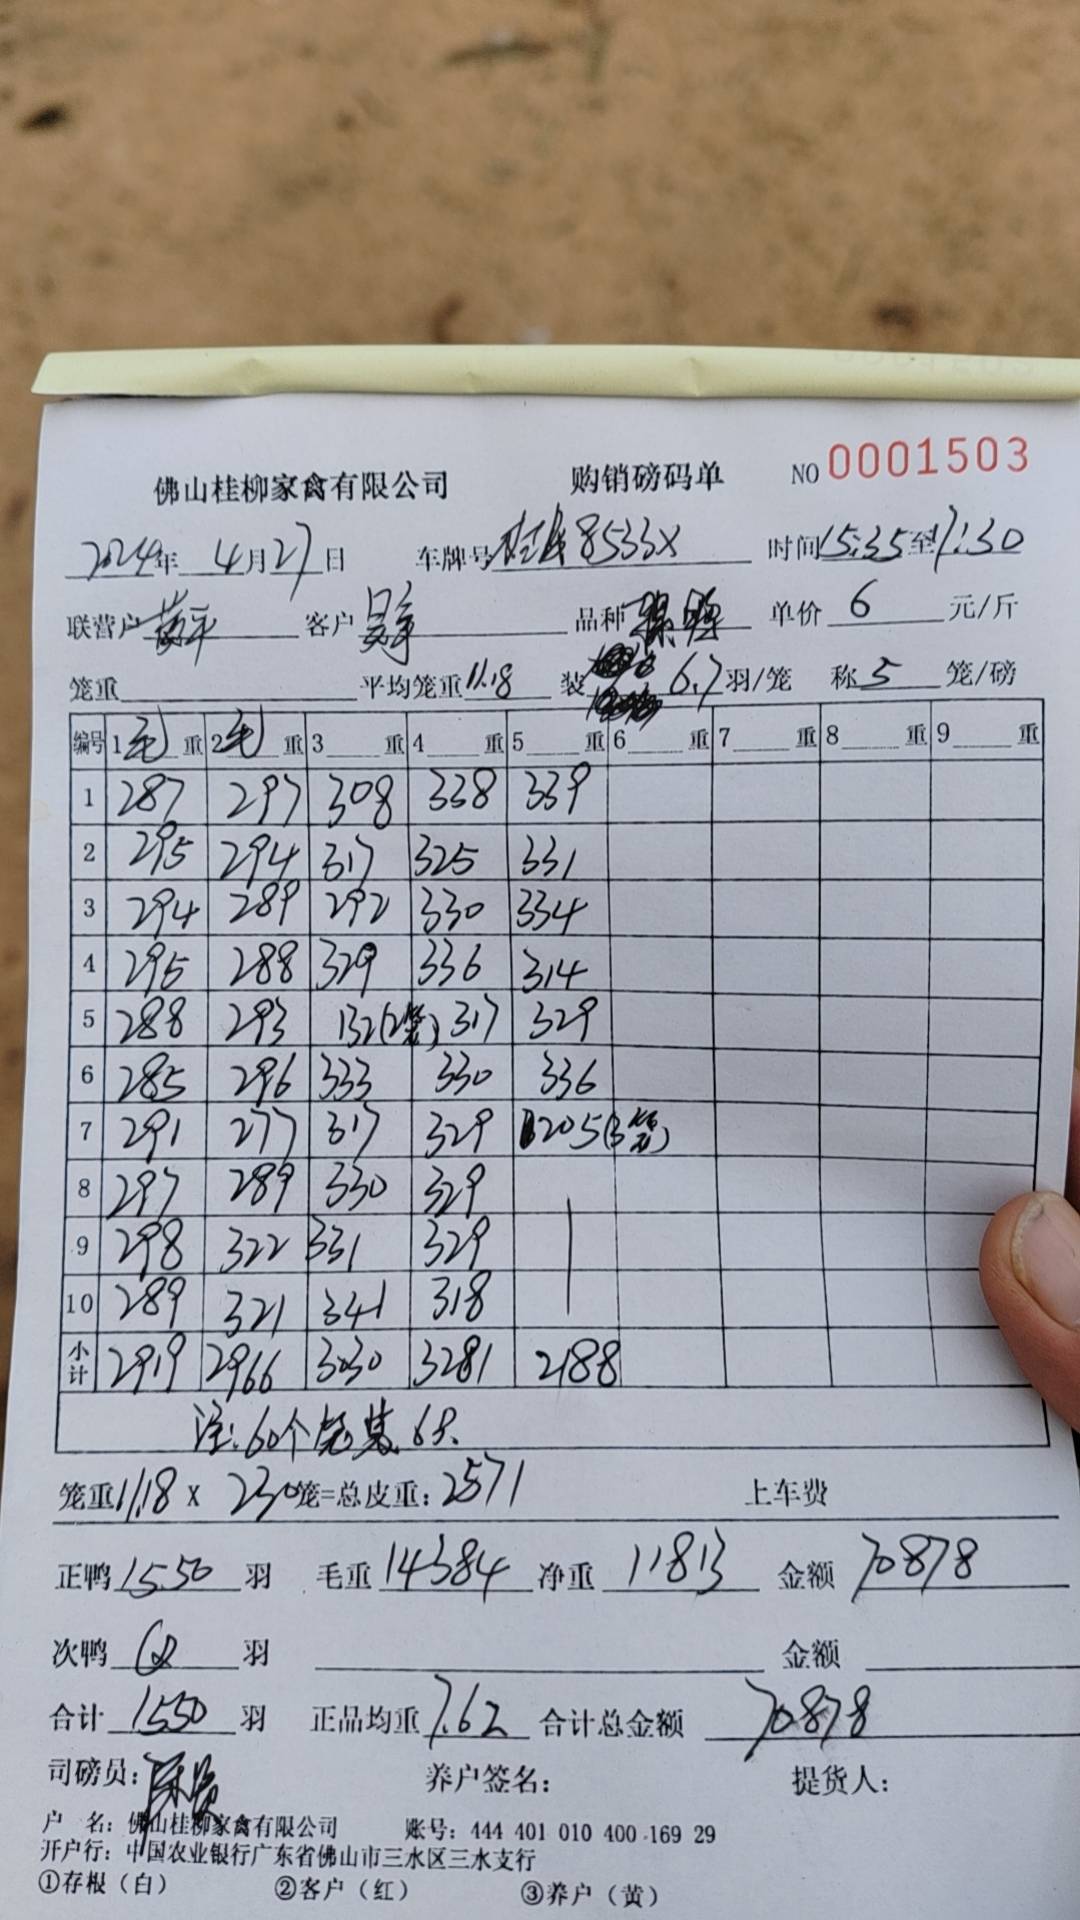 佛山桂柳家禽有限公司 购销磅码单 NO 0001503
2024年 4月27日 车牌号 8533X 时间15:35至17:30
联营户 客户 品种 单价 6 元/斤
笼重 平均笼重11.18 装 6.7羽/笼 称5笼/磅
编号 1毛重 2毛重 3重 4重 5重 6重 7重 8重 9重
1 287 297 308 338 339
2 295 294 317 325 331
3 294 289 292 330 334
4 295 288 329 336 314
5 288 293 132(2笼) 317 329
6 285 296 333 330 336
7 291 277 317 329 205(3笼)
8 297 289 330 329
9 298 322 331 329
10 289 321 341 318
小计 2919 2966 3030 3281 2188
注:60个笼装6只.
笼重11.18 x 230笼=总皮重:2571 上车费
正鸭1550羽 毛重14384 净重11813 金额70878
次鸭 羽 金额
合计1550羽 正品均重7.62 合计总金额70878
司磅员: 养户签名: 提货人:
户 名: 佛山桂柳家禽有限公司 账号: 444 401 010 400 169 29
开户行: 中国农业银行广东省佛山市三水区三水支行
①存根（白） ②客户（红） ③养户（黄）